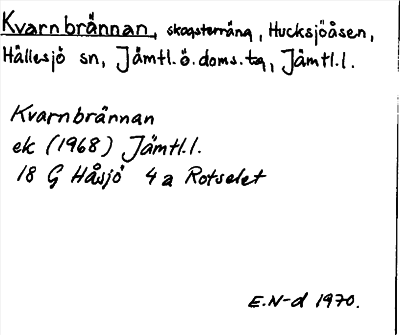 Kvarnbrännan, skogsterräng, Hucksjöåsen,
Hällesjö sn, Jämtl.ö.doms.tg, Jämtl.l.
Kvarnbrännan
ek (1968) Jämtl.l.
18 G Håsjö 4 a Rotselet
E.N-d 1970.